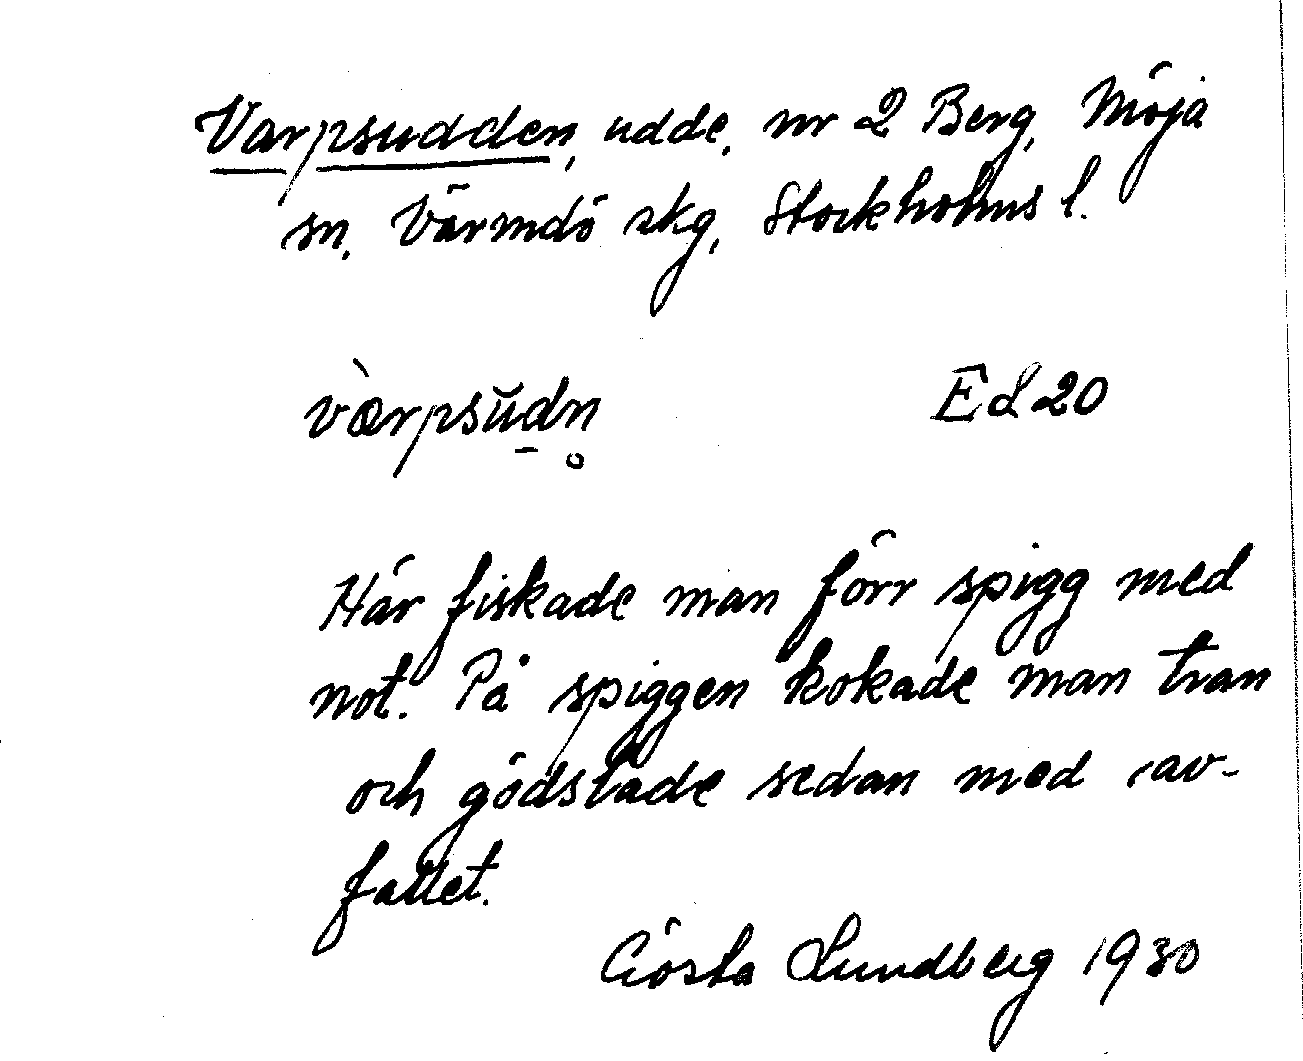 Varpsudden, udde, nr 2 Berg, Möja
sn, Värmdö skg, Stockholms l.
væ̀rpsŭd̲n̥ Ed 20
Här fiskade man förr spigg med
not. På spiggen kokade man tran
och gödslade sedan med av-
fallet.
Gösta Lundberg 1930